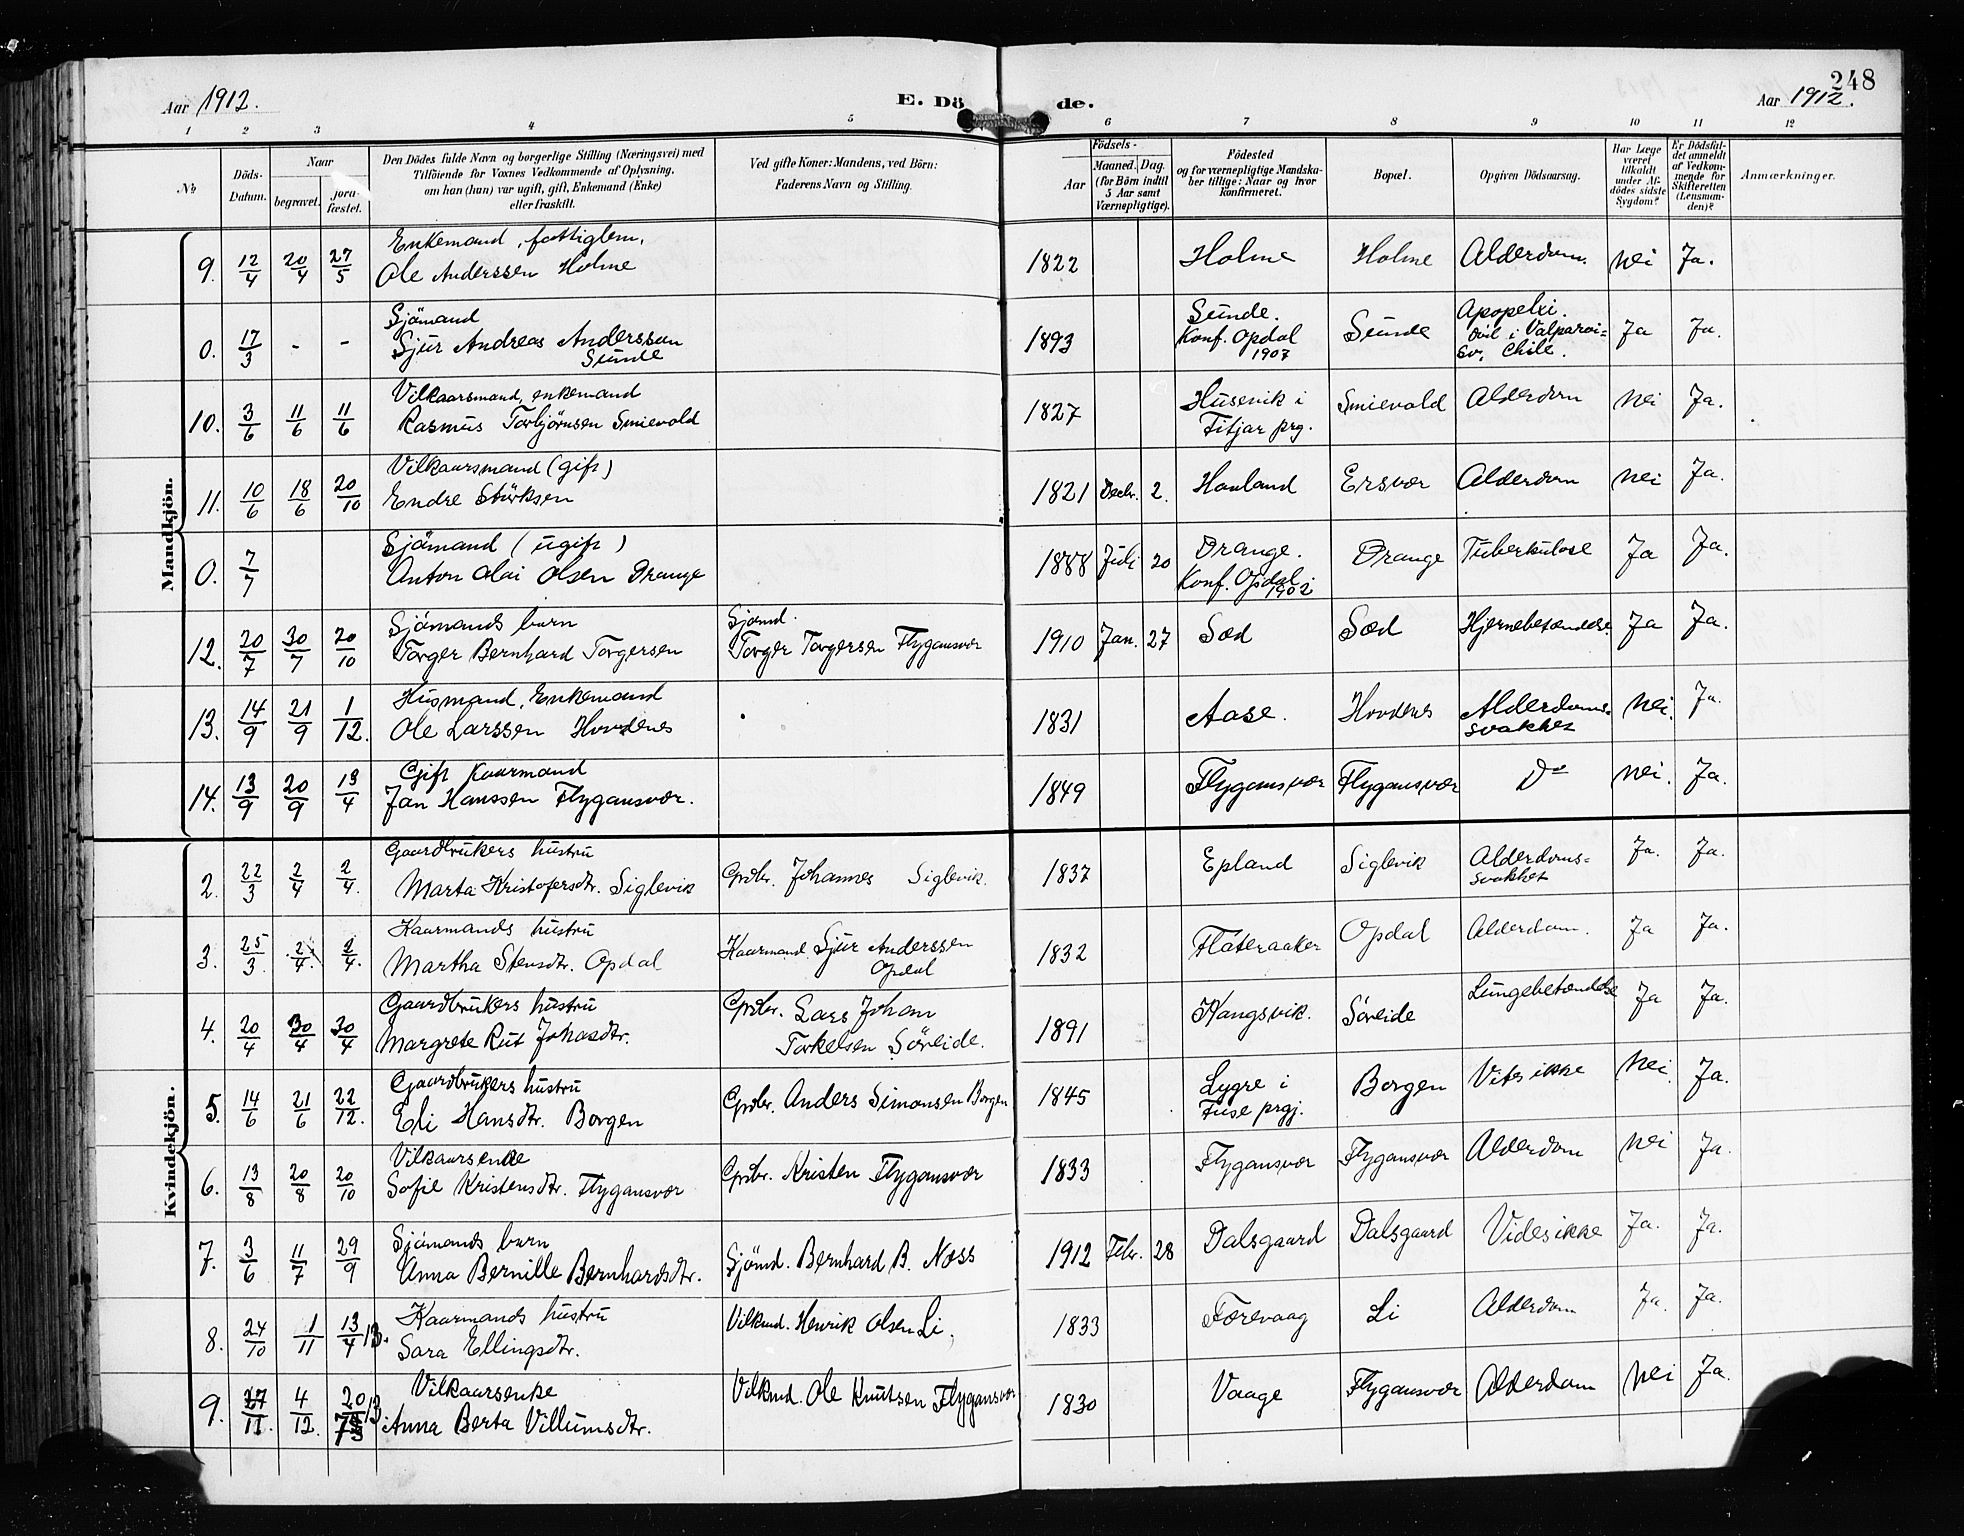 248
Aar 1912.
E. Dö de.
Aar 1912.
1 2 3 4 5 6 7 8 9 10 11 12
No
Döds-
Datum.
Naar
begravet.
jord-
fæstet.
Den Dödes fulde Navn og borgerlige Stilling (Næringsvei) med
Tilföiende for Voxnes Vedkommende af Oplysning,
om han (hun) var ugift, gift, Enkemand (Enke)
eller fraskilt.
Ved gifte Koner: Mandens, ved Börn:
Faderens Navn og Stilling.
Födsels-
Aar
Maaned. Dag.
(for Børn indtil
5 Aar samt
Værnepligtige).
Födested
og for værnepligtige Mandska-
ber tillige: Naar og hvor
konfirmeret.
Bopæl.
Opgiven Dödsaarsag.
Har Læge
været
tilkaldt
under Af-
dödes sidste
Sygdom?
Er Dödsfal-
det anmeldt
af Vedkom-
mende for
Skifteretten
(Lensman-
den)?
Anmærkninger.
Mandkjön.
Enkemand, fattiglem.
9. 12/4 20/4 27/5 Ole Anderssen Holme 1822 Holme Holme Alderdom. Nei Ja.
Sjömand
0. 17/3 - - Sjur Andreas Anderssen
Sunde
1893 Sunde.
Konf. Opdal
1907
Sunde Apopelxi.
Död i Valparai=
so, Chile.
Ja Ja.
Vilkaarsmand, enkemand
10. 3/6 11/6 11/6 Rasmus Torbjörnsen Smievold 1827 Husevik i
Fitjar prg.
Smievold Alderdom Nei Ja.
Vilkaarsmand (gift)
11. 10/6 18/6 20/10 Endre Störksen 1821 Decbr. 2. Hauland Ersvær Alderdom Nei Ja.
Sjömand (ugift)
0. 7/7 Anton Olai Olsen Drange 1888 Juli 20 Drange.
Konf. Opdal
1902
Drange Tuberkulose Ja Ja.
Sjömands barn
12. 20/7 30/7 20/10 Torger Bernhard Torgersen Sjömd.
Torger Torgersen Flygansvær 1910 Jan. 27 Sæd Sæd Hjernebetændelse. Ja Ja.
Husmand, Enkemand
13. 14/9 21/9 1/12. Ole Larssen Hovdenes 1831 Aase. Hovdenes Alderdoms=
svakhet
Nei. Ja.
Gift Kaarmand
14. 13/9 20/9 13/4 Jan Hanssen Flygansvær. 1849 Flygansvær Flygansvær Do Nei. Ja.
Kvindekjön.
Gaardbrukers hustru
2. 22/3 2/4 2/4. Marta Kristofersdtr. Siglevik Grdbr. Johannes Siglevik. 1837 Epland Siglevik Alderdoms=
svakhet
Ja. Ja.
Kaarmands hustru
3. 25/3. 2/4. 2/4. Martha Stensdtr. Opdal Kaarmand Sjur Anderssen
Opdal
1832 Flateraaker Opdal Alderdom. Ja Ja.
Gaardbrukers hustru
4. 20/4 30/4 30/4 Margrete Rut Johasdtr. Grdbr. Lars Johan
Torkelsen Söreide.
1891 Kangsvik. Söreide Lungebetændelse Ja Ja.
Gaardbrukers hustru
5. 14/6 21/6 22/12. Eli Hansdtr. Borgen Grdbr. Anders Simonsen Borgen 1845 Lygre i
Fuse prgj.
Borgen Vites ikke Nei. Ja.
Vilkaarsenke
6. 13/8 20/8 20/10 Sofie Kristensdtr. Flygansvær Grdbr. Kristen Flygansvær 1833 Flygansvær Flygansvær Alderdom Nei Ja.
Sjömands barn
7. 3/6 11/7 29/9 Anna Bernille Bernhardsdtr. Sjömd. Bernhard B. Næss 1912 Febr. 28 Dalsgaard Dalsgaard Vides ikke Ja. Ja.
Kaarmands hustru
8. 24/10 1/11 13/4 13. Sara Ellingsdtr. Vilkmd. Henrik Olsen Li. 1833 Færevaag Li Alderdom Ja. Ja.
Vilkaarsenke
9. 27/11. 4/12. 20 13 Anna Berta Villumsdtr. Vilkmd. Ole Knutsen Flygansvær 1830 Vaage Flygansvær Alderdom Nei Ja.